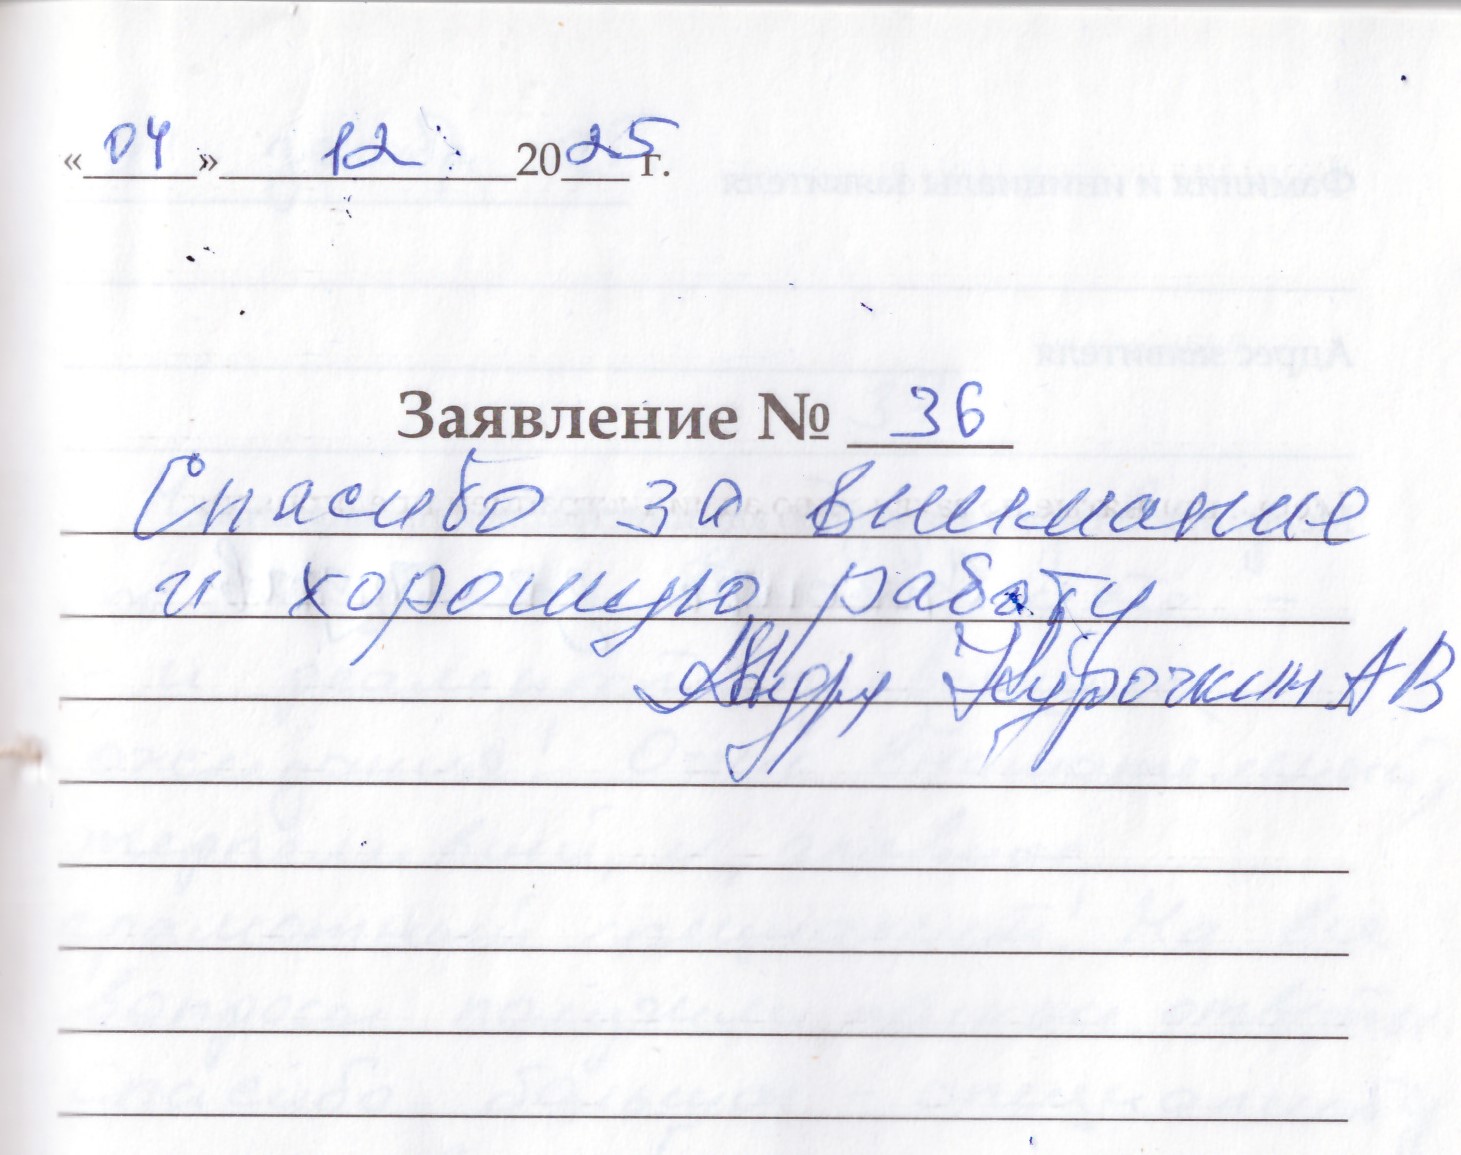 «04» 12 2025 г.
Заявление № 36
Спасибо за внимание
и хорошую работу
Курочкин АВ